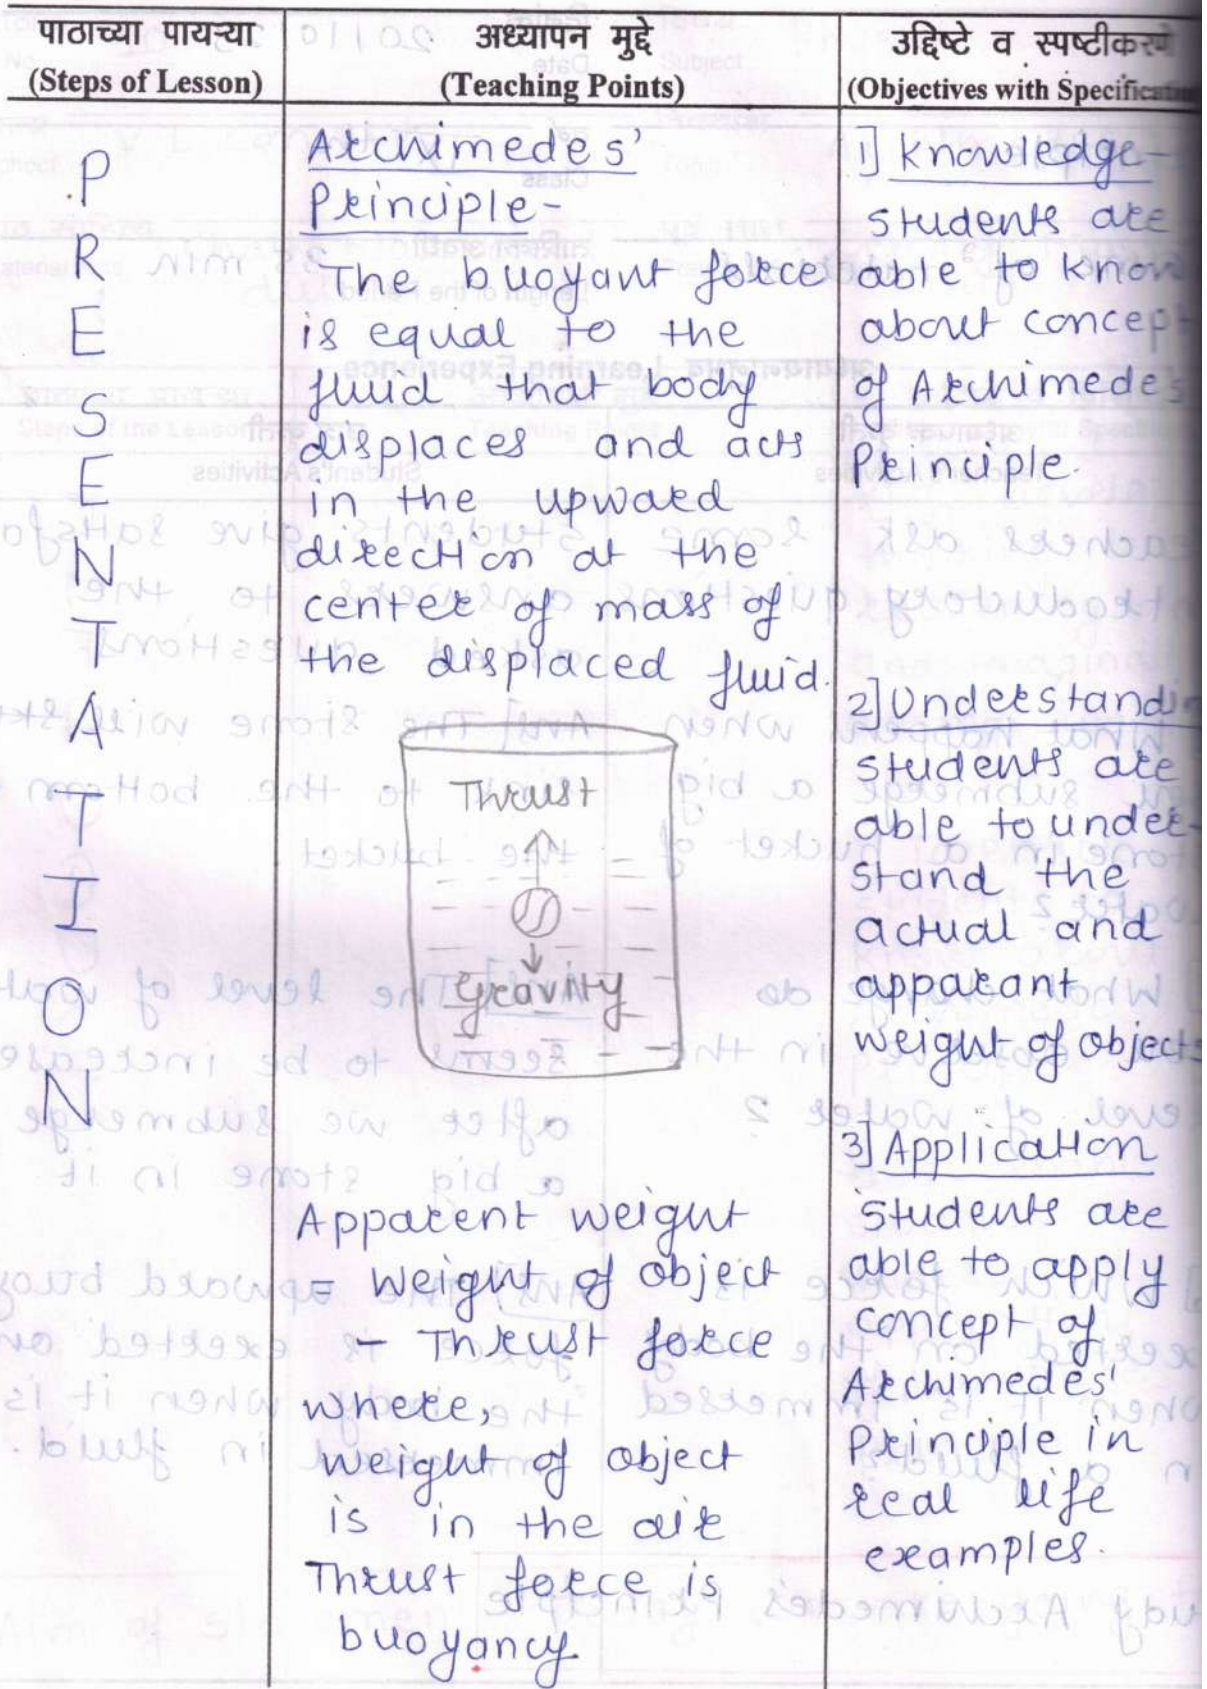 पाठाच्या पायऱ्या
(Steps of Lesson)
P
R
E
S
E
N
T
A
T
I
O
N
अध्यापन मुद्दे
(Teaching Points)
Archimedes'
Principle-
The buoyant force
is equal to the
fluid that body
displaces and acts
in the upward
direction at the
center of mass of
the displaced fluid.
Thrust
Gravity
Apparent weight
= weight of object
- Thrust force
where,
weight of object
is in the air
Thrust force is
buoyancy.
उद्दिष्टे व स्पष्टीकरणे
(Objectives with Specification
1] Knowledge-
students are
able to know
about concept
of Archimedes
Principle.
2] Understandi
students are
able to under-
stand the
actual and
apparant
weight of object
3] Application
students are
able to apply
concept of
Archimedes'
Principle in
real life
examples.